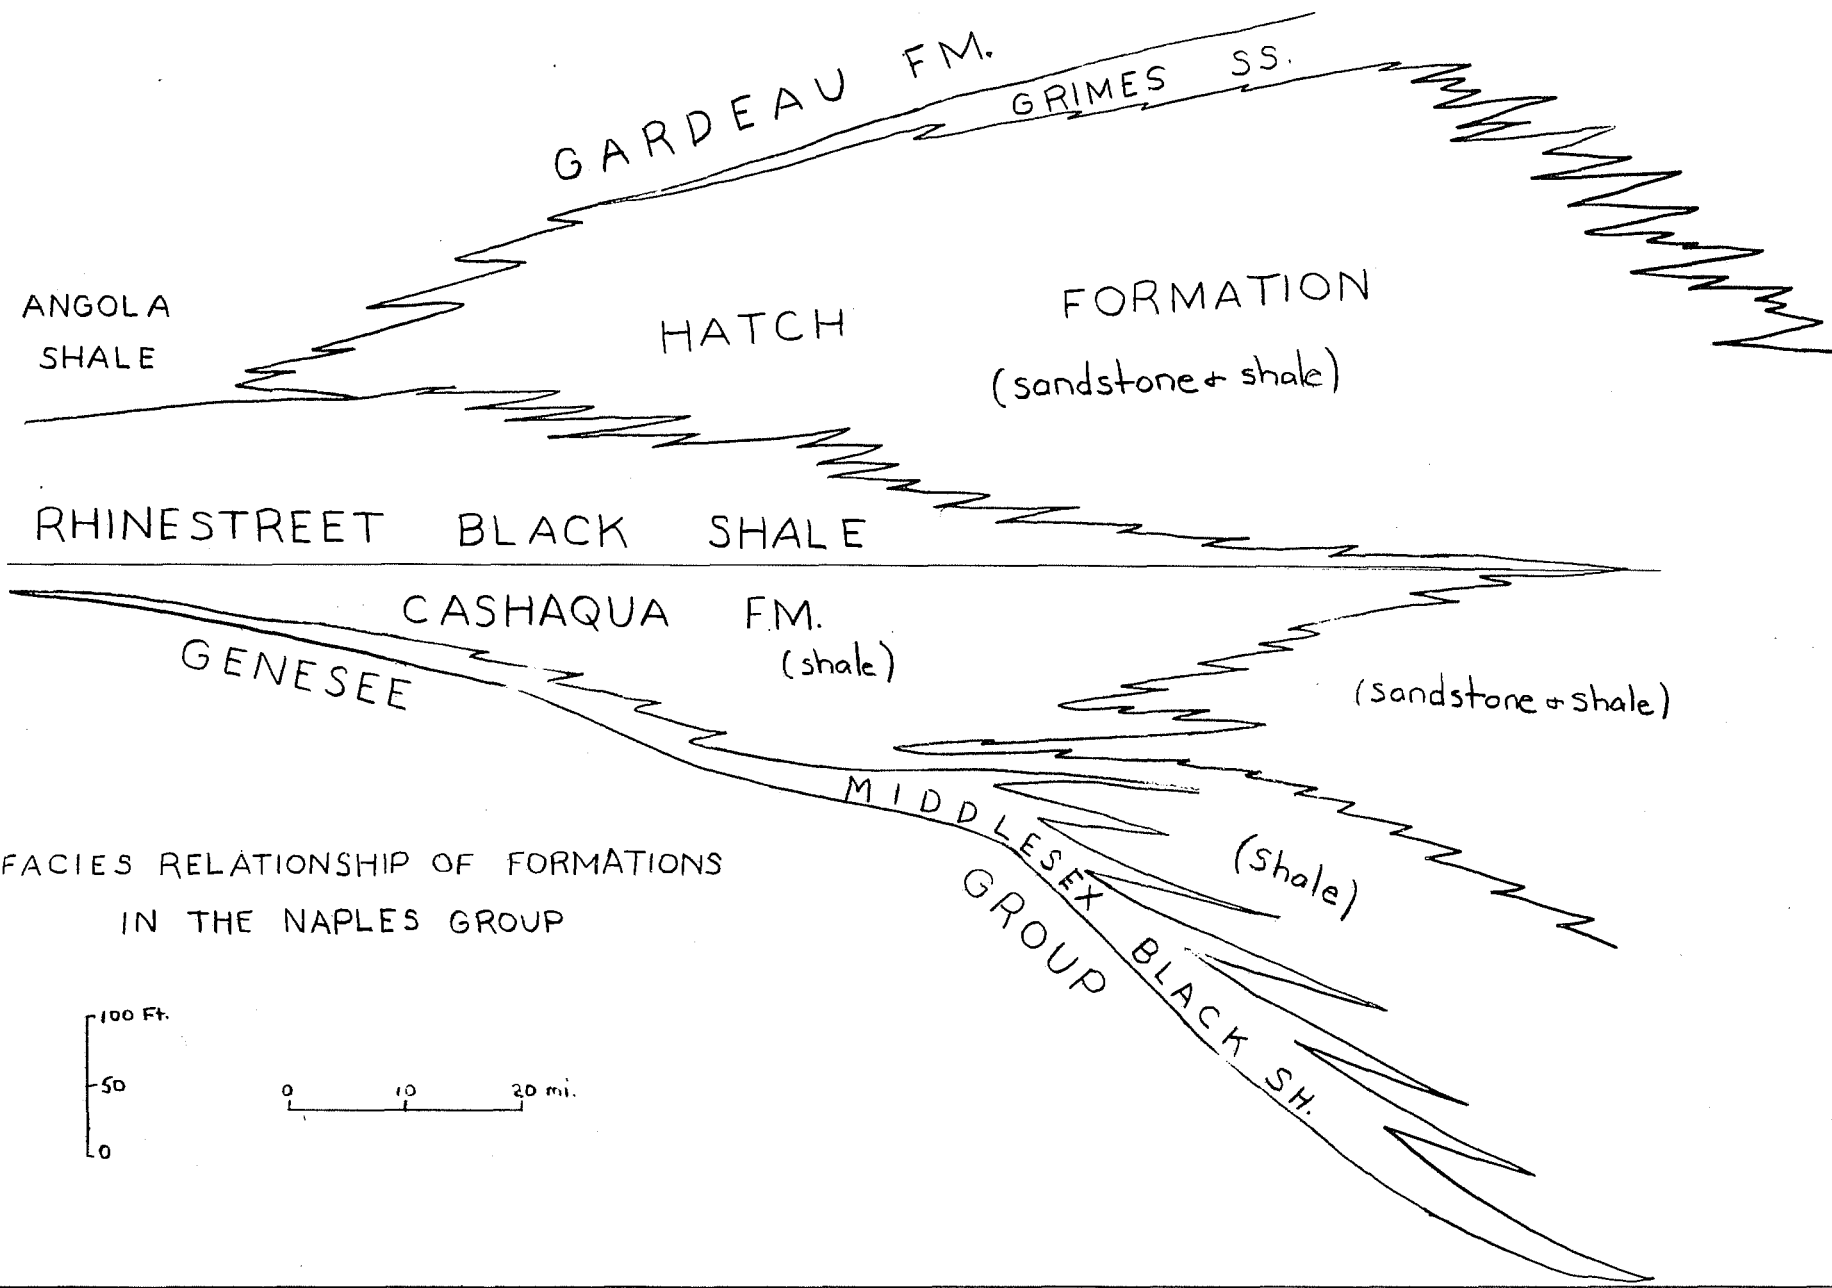 GARDEAU FM.
GRIMES SS.
ANGOLA
SHALE
HATCH FORMATION
(sandstone & shale)
RHINESTREET BLACK SHALE
CASHAQUA F.M.
(shale)
GENESEE
(sandstone & shale)
MIDDLESEX BLACK SH.
(shale)
GROUP
FACIES RELATIONSHIP OF FORMATIONS
IN THE NAPLES GROUP
100 Ft.
50
0
0 10 20 mi.